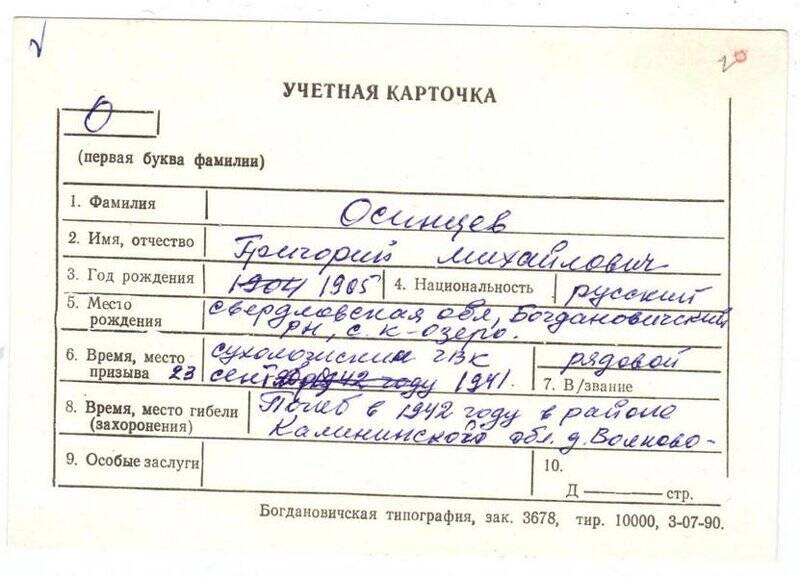 √ 20
УЧЕТНАЯ КАРТОЧКА
О
(первая буква фамилии)
1. Фамилия Осинцев
2. Имя, отчество Григорий Михайлович
3. Год рождения 1904 1905 4. Национальность русский
5. Место рождения свердловская обл, Богдановичский
рн, с. к-озеро.
6. Время, место призыва сухоложский ГВК
23 сент 1942 году 1941. 7. В/звание рядовой
8. Время, место гибели (захоронения) Погиб в 1942 году в районе
Калининского обл. д. Волково-
9. Особые заслуги 10.
Д ——— стр.
Богдановичская типография, зак. 3678, тир. 10000, 3-07-90.